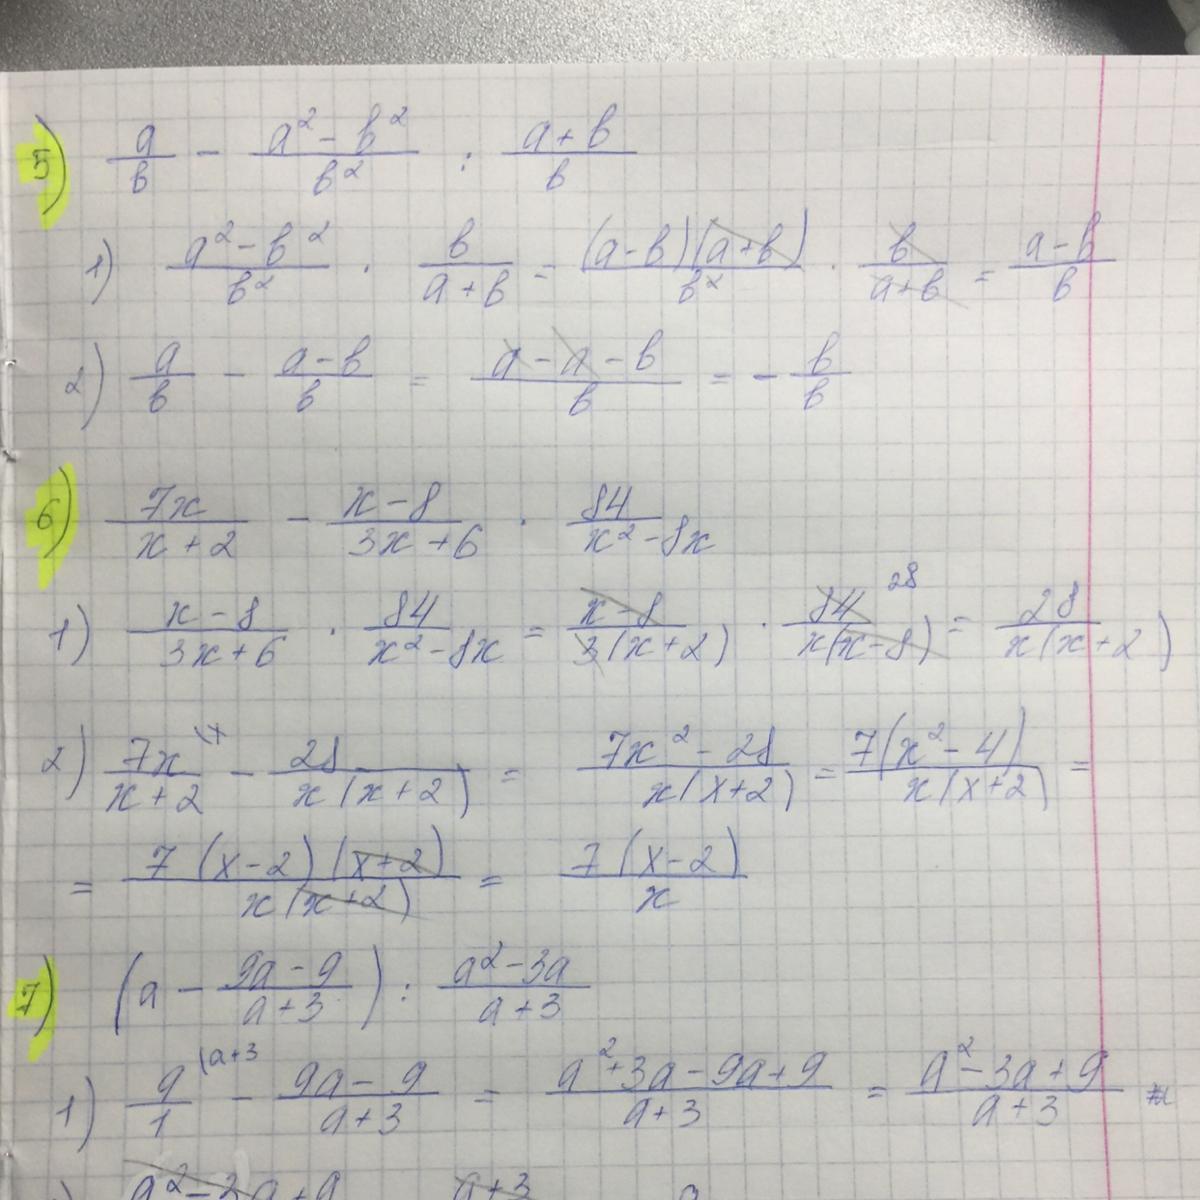 5) a/b - (a² - b²)/b² : (a+b)/b
1) (a² - b²)/b² · b/(a+b) = (a-b)(a+b)/b² · b/(a+b) = (a-b)/b
2) a/b - (a-b)/b = (a-a-b)/b = - b/b
6) 7x/(x+2) - (x-8)/(3x+6) · 84/(x²-8x)
1) (x-8)/(3x+6) · 84/(x²-8x) = (x-8)/(3(x+2)) · 84 28/(x(x-8)) = 28/(x(x+2))
2) 7x/(x+2) - 28/(x(x+2)) = (7x²-28)/(x(x+2)) = 7(x²-4)/(x(x+2)) =
= 7(x-2)(x+2)/(x(x+2)) = 7(x-2)/x
7) (a - (9a-9)/(a+3)) : (a²-3a)/(a+3)
1) a/1 (a+3 - (9a-9)/(a+3) = (a²+3a-9a+9)/(a+3) = (a²-3a+9)/(a+3)
a²-3a+9 a+3